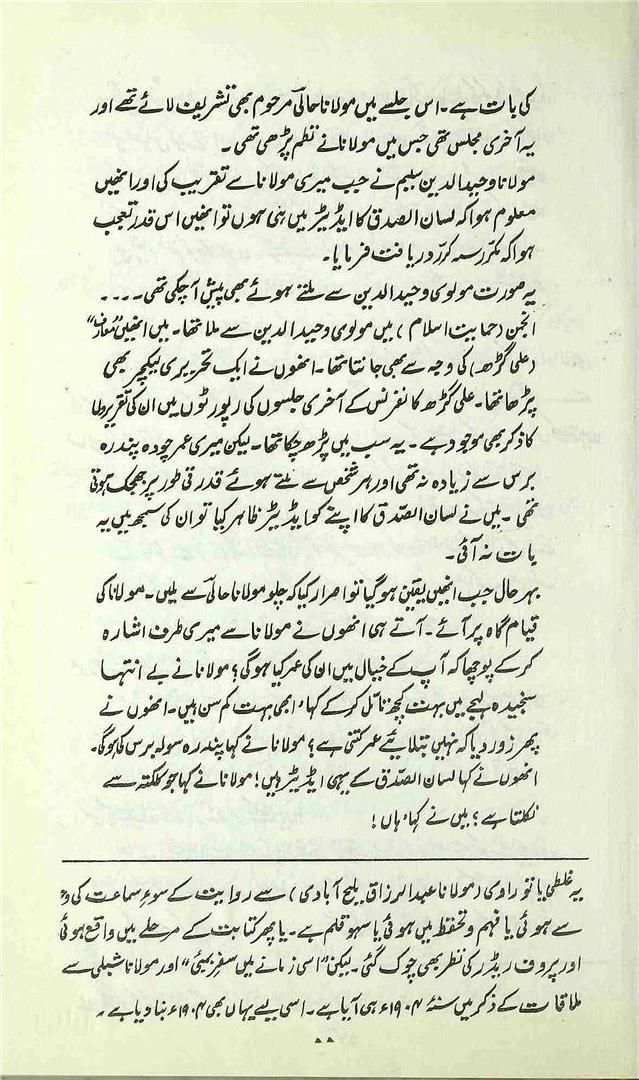 کی بات ہے۔ اس جلسے میں مولانا حالیؔ مرحوم بھی تشریف لائے تھے اور
یہ آخری مجلس تھی جس میں مولانا نے نظم پڑھی تھی۔
مولانا وحید الدین سلیم نے جب میری مولانا سے تقریب کی اور انھیں
معلوم ہوا کہ لسان الصدق کا ایڈیٹر میں ہی ہوں تو انھیں اس قدر تعجب
ہوا کہ مکرّر سہ کرّر دریافت فرمایا۔
یہ صورت مولوی وحید الدین سے ملتے ہوئے بھی پیش آچکی تھی۔۔۔۔
انجمن (حمایت اسلام) میں مولوی وحید الدین سے ملا تھا۔ میں انھیں "معارف"
(علی گڑھ) کی وجہ سے بھی جانتا تھا۔ انھوں نے ایک تحریری لیکچر بھی
پڑھا تھا۔ علی گڑھ کانفرنس کے آخری جلسوں کی رپورٹوں میں ان کی تقریروں
کا ذکر بھی موجود ہے۔ یہ سب میں پڑھ چکا تھا۔ لیکن میری عمر چودہ پندرہ
برس سے زیادہ نہ تھی اور ہر شخص سے ملتے ہوئے قدرتی طور پر جھجک ہوتی
تھی۔ میں نے لسان الصّدق کا اپنے کو ایڈیٹر ظاہر کیا تو ان کی سمجھ میں یہ
بات نہ آئی۔
بہر حال جب انھیں یقین ہو گیا تو اصرار کیا کہ چلو مولانا حالیؔ سے ملیں۔ مولانا کی
قیام گاہ پر آئے۔ آتے ہی انھوں نے مولانا سے میری طرف اشارہ
کر کے پوچھا کہ آپ کے خیال میں ان کی عمر کیا ہوگی؟ مولانا نے بے انتہا
سنجیدہ لہجے میں بہت کچھ تأمّل کر کے کہا، ابھی بہت کم سن ہیں۔ انھوں نے
پھر زور دیا کہ نہیں بتلائیے عمر کتنی ہے؟ مولانا نے کہا پندرہ سولہ برس کی ہوگی۔
انھوں نے کہا لسان الصّدق کے یہی ایڈیٹر ہیں! مولانا نے کہا جو کلکتہ سے
نکلتا ہے؟ میں نے کہا، ہاں!
یہ غلطی یا تو راوی (مولانا عبدالرزاق ملیح آبادی) سے روایت کے سوءِ سماعت کی وجہ
سے ہوئی یا فہم و تحفظ میں ہوئی یا سہو قلم ہے۔ یا پھر کتابت کے مرحلے میں واقع ہوئی
اور پروف ریڈر کی نظر بھی چوک گئی۔ لیکن "اسی زمانے میں سفرِ بمبئی" اور مولانا شبلی سے
ملاقات کے ذکر میں سنہ ۱۹۰۴ء ہی آیا ہے۔ اسی لیے یہاں بھی ۱۹۰۴ء بنا دیا ہے۔